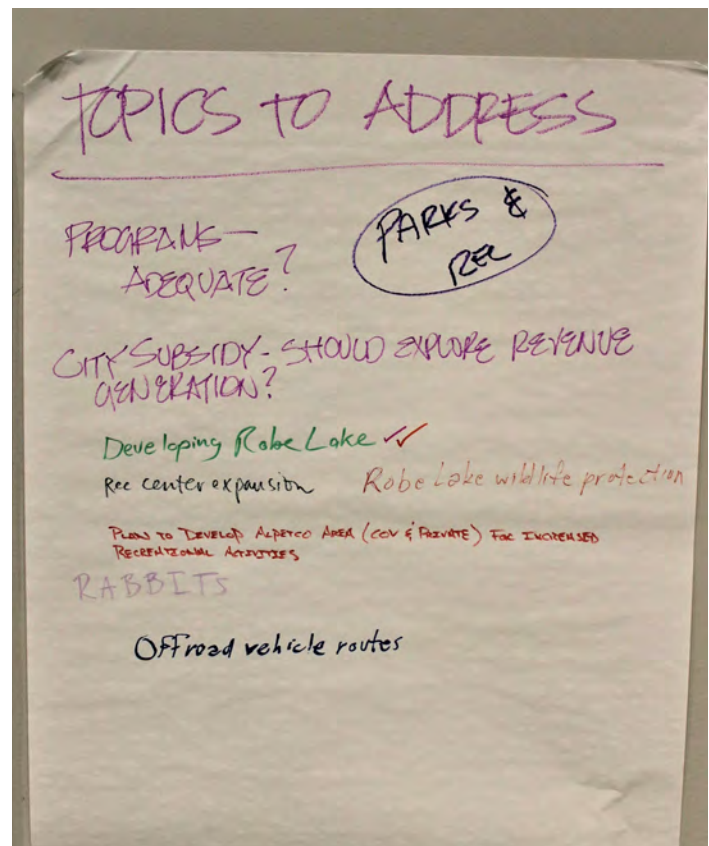 TOPICS TO ADDRESS
PROGRAMS—
ADEQUATE?
PARKS &
REC
CITY SUBSIDY - SHOULD EXPLORE REVENUE
GENERATION?
Developing Robe Lake ✓✓
Rec center expansion
Robe Lake wildlife protection
PLAN TO DEVELOP ALPETCO AREA (COV & PRIVATE) FOR INCREASED
RECREATIONAL ACTIVITIES
RABBITS
Offroad vehicle routes